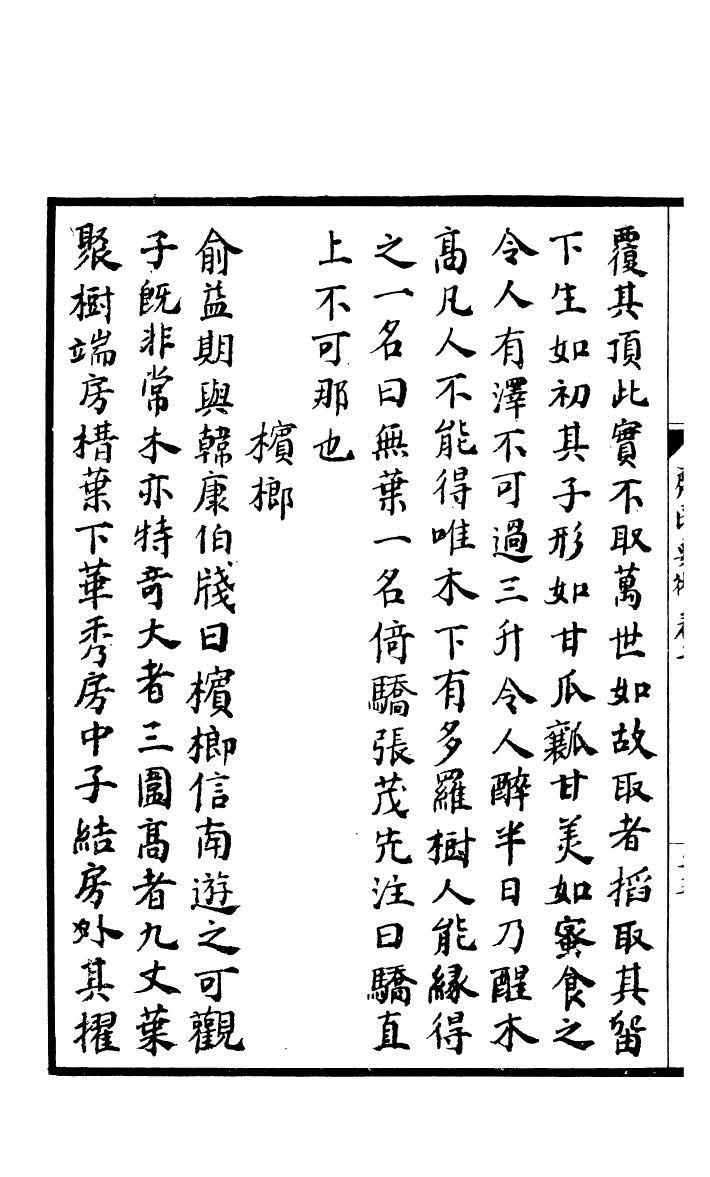 覆其頂此實不取萬世如故取者掐取其留
下生如初其子形如甘瓜瓤甘美如蜜食之
令人有澤不可過三升令人醉半日乃醒木
高凡人不能得唯木下有多羅樹人能緣得
之一名曰無葉一名倚驕張茂先注曰驕直
上不可那也
檳榔
俞益期與韓康伯牋曰檳榔信南遊之可觀
子既非常木亦特竒大者三圍高者九丈葉
聚樹端房楮葉下華秀房中子結房外其擢